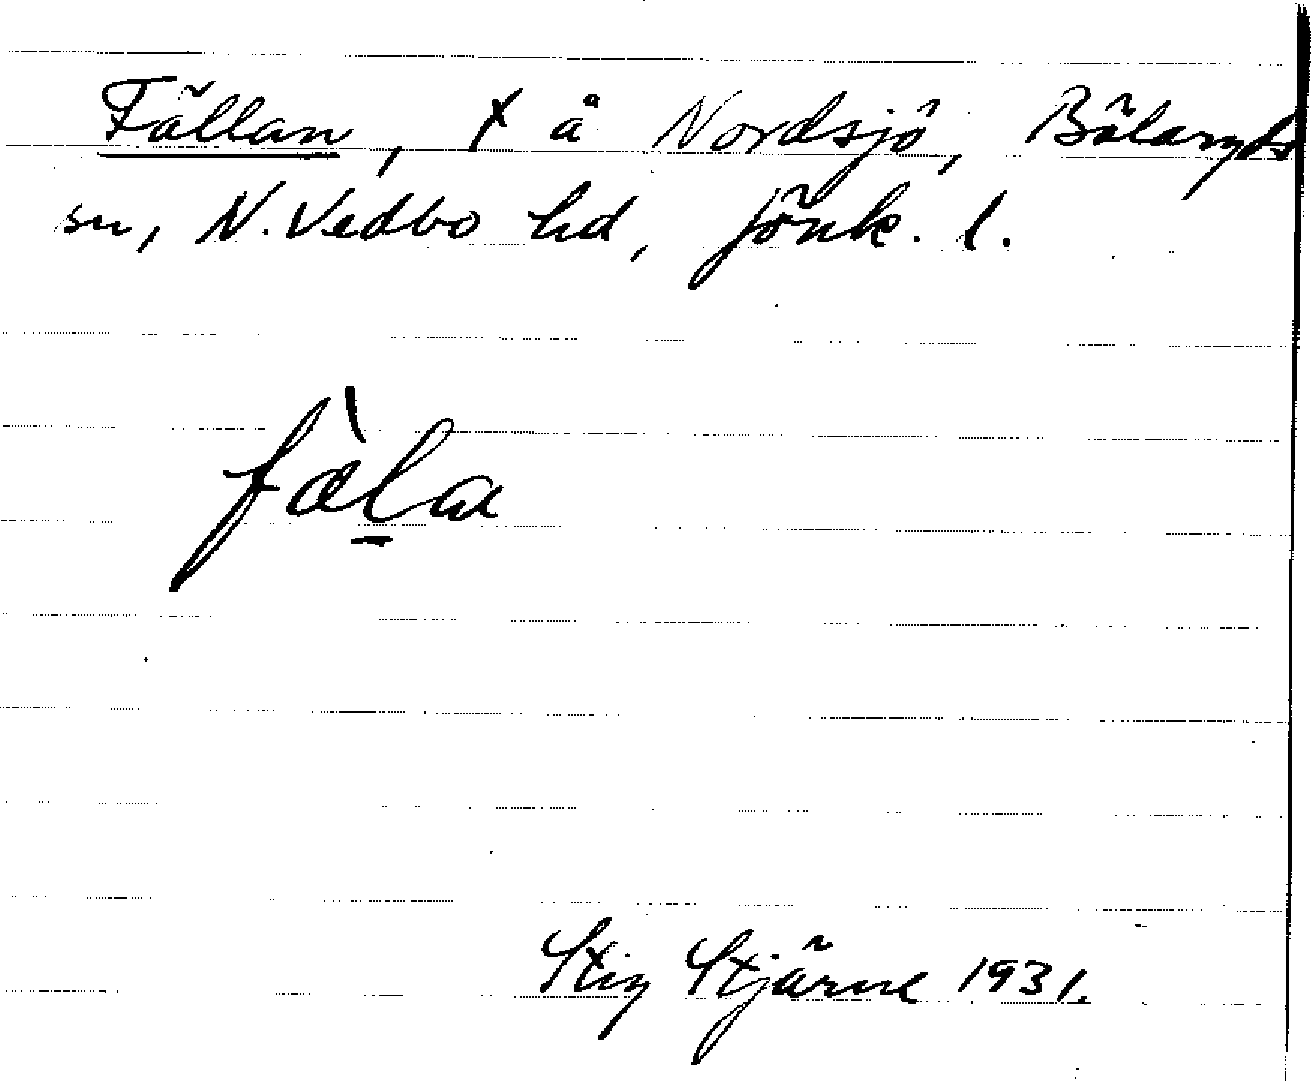 Fällan, x å Nordsjö, Bälaryds
sn, N. Vedbo hd, Jönk. l.
fàl̠a
Stig Stjärne 1931.